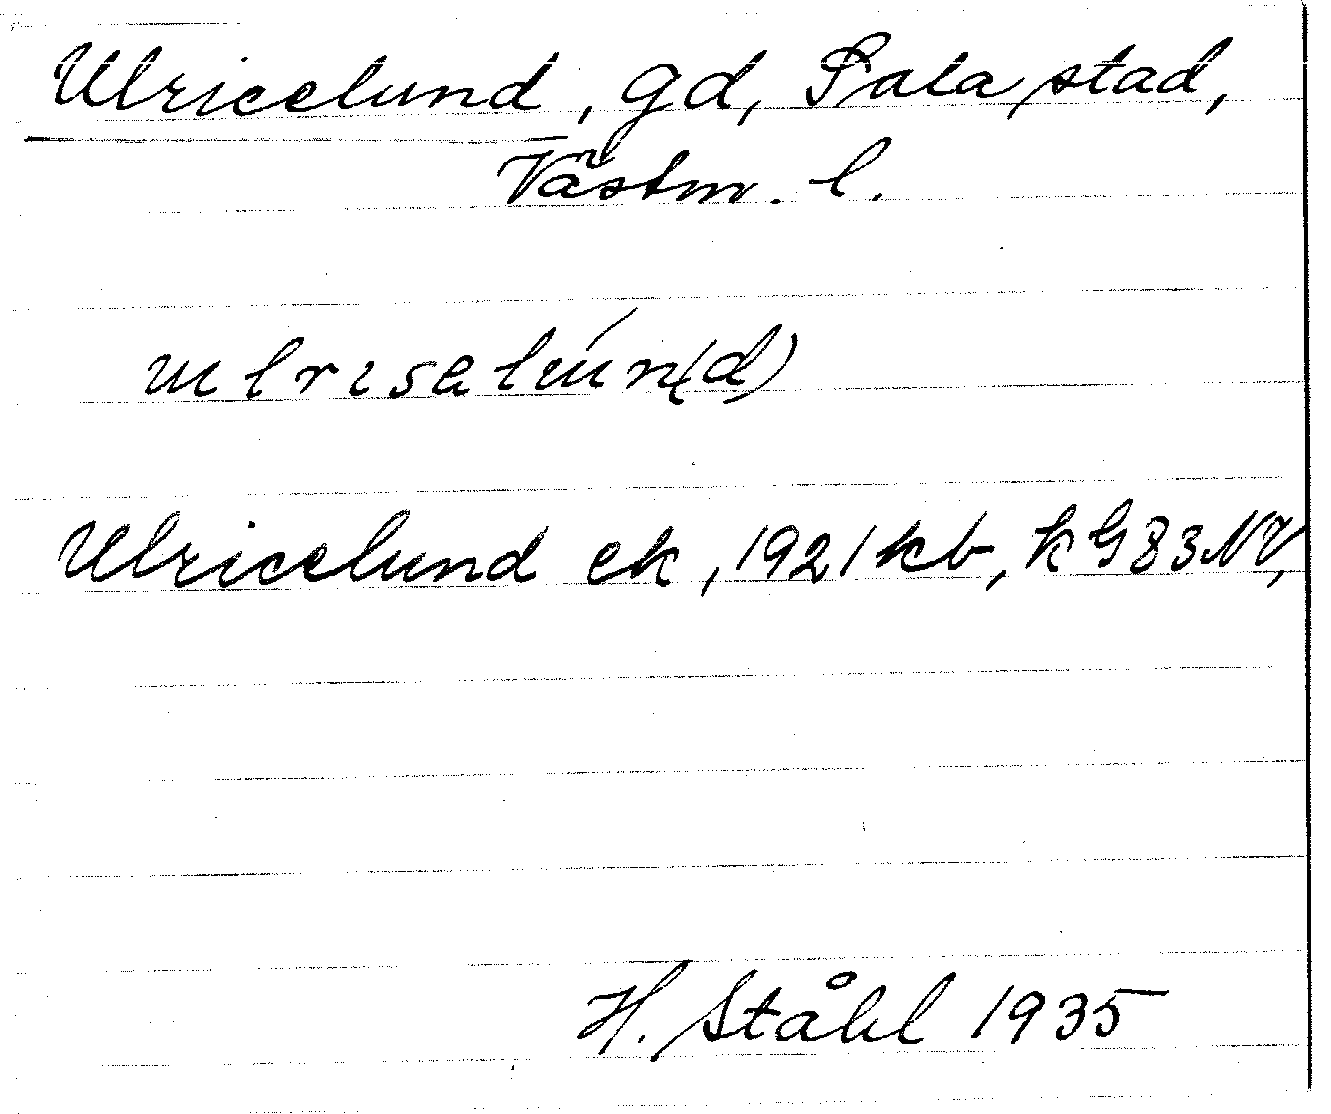 Ulricelund, gd, Sala stad,
Västm. l.
ulrisalún(d)
Ulricelund ek, 1921 kb, k G 83 NV,
H. Ståhl 1935